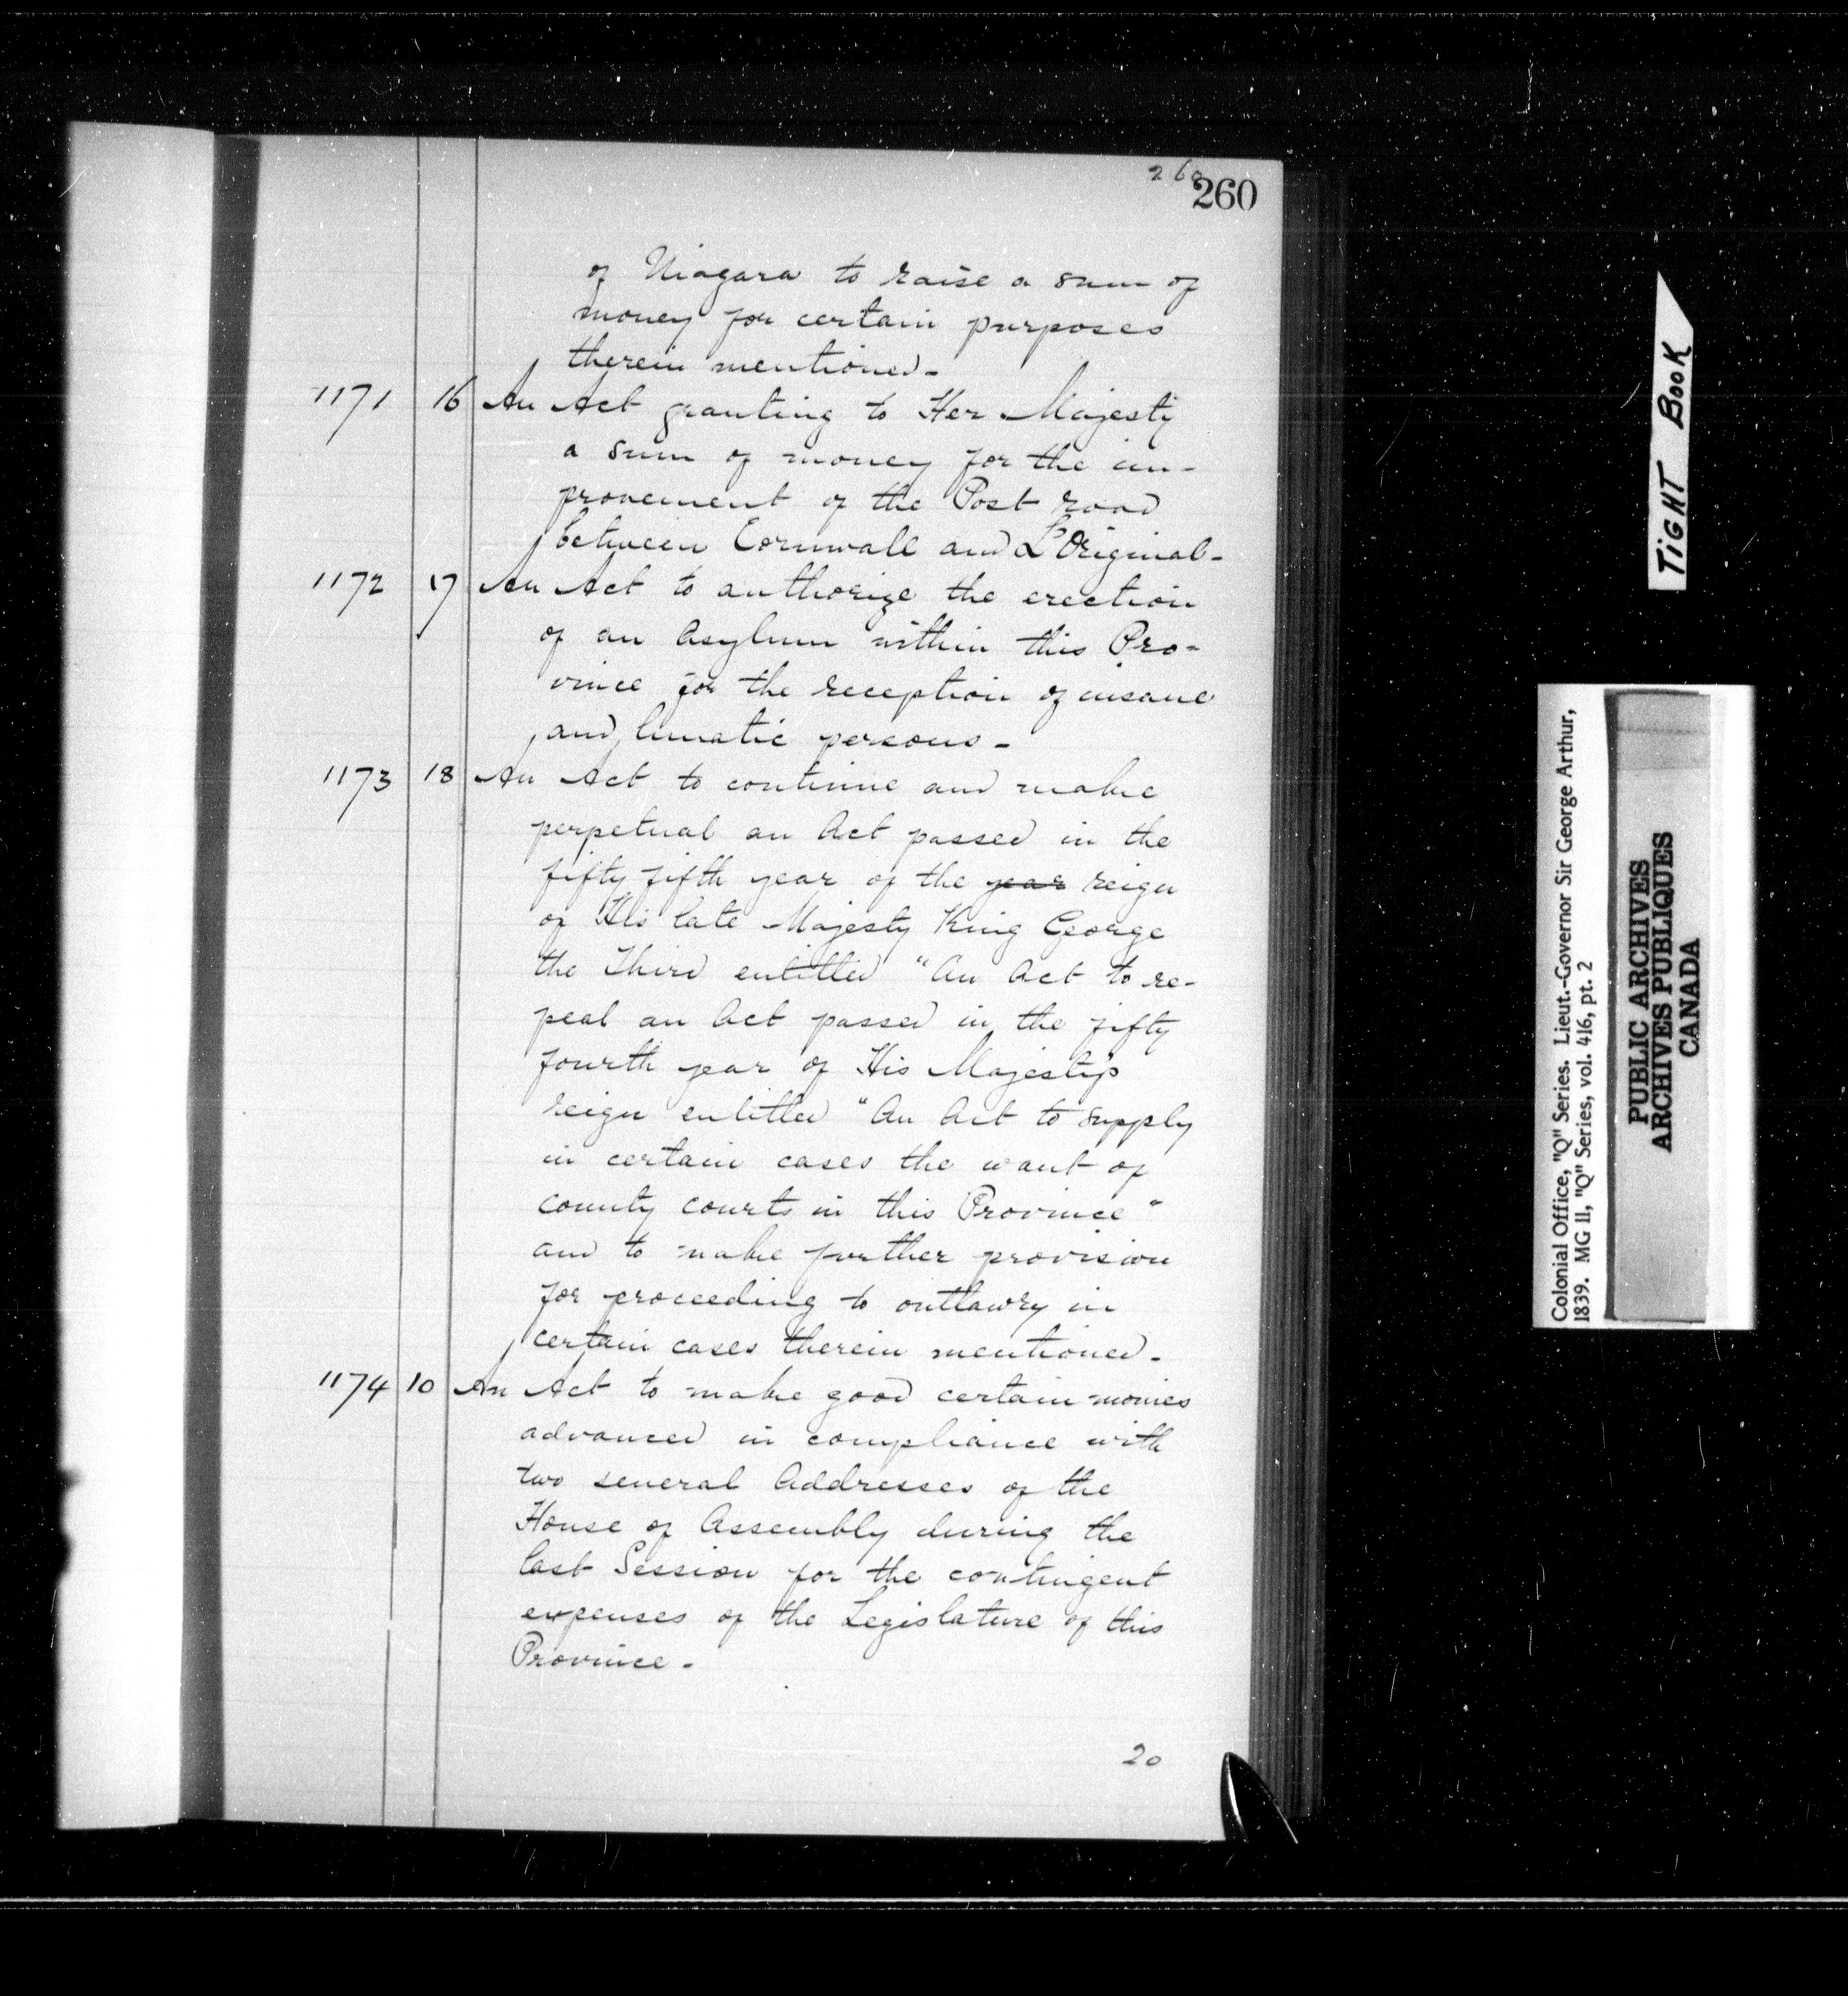 260
260
of Niagara to raise a sum of
money for certain purposes
therein mentioned-
1171 16 An Act granting to Her Majesty
a sum of money for the im-
provement of the Post road
between Cornwall and L'Original-
1172 17 An Act to authorize the erection
of an Asylum within this Pro-
vince for the reception of insane
and lunatic persons-
1173 18 An Act to continue and make
perpetual an Act passed in the
fifty fifth year of the year reign
of His late Majesty King George
the Third entitled "An Act to re-
peal an Act passed in the fifty
fourth year of His Majesty's
reign entitled "An Act to supply
in certain cases the want of
county courts in this Province"
and to make further provision
for proceeding to outlawry in
certain cases therein mentioned.
1174 10 An Act to make good certain monies
advanced in compliance with
two several Addresses of the
House of Assembly during the
last Session for the contingent
expenses of the Legislature of this
Province-
20
TIGHT BOOK
Colonial Office, "Q" Series. Lieut.-Governor Sir George Arthur,
1839. MG 11, "Q" Series, vol. 416, pt. 2
PUBLIC ARCHIVES
ARCHIVES PUBLIQUES
CANADA